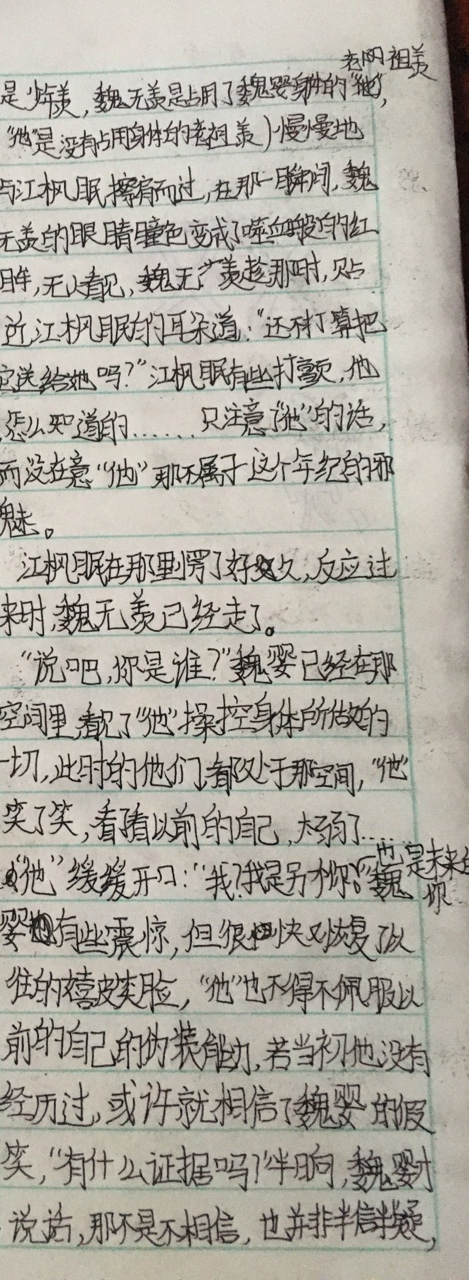 老阿祖羡
是少年羡，魏无羡是占用了魏婴身体的“他”，
“他”是没有占用身体的老祖羡）慢慢地
与江枫眠擦肩而过，在那一瞬间，魏
无羡的眼睛瞳色变成了嗜血般的红
眸，无人看见，魏无羡趁那时，贴
近江枫眠的耳朵道：“还不打算把
它送给她吗？”江枫眠有些打颤，他
怎么知道的……只注意“他”的话，
而没在意“他”那不属于这个年纪的邪
魅。
江枫眠在那里愣了好久，反应过
来时，魏无羡已经走了。
“说吧，你是谁？”魏婴已经在那
空间里看见了“他”操控身体所做的
一切，此时的他们都处于那空间，“他”
笑了笑，看着以前的自己，太弱了…
“他”缓缓开口：“我？我是另个你”魏
也是未来的你
婴有些震惊，但很快又恢复了以
往的嬉皮笑脸，“他”也不得不佩服以
前的自己的伪装能力，若当初他没有
经历过，或许就相信了魏婴的假
笑，“有什么证据吗？”半晌，魏婴才
说话，那不是不相信，也并非半信半疑，